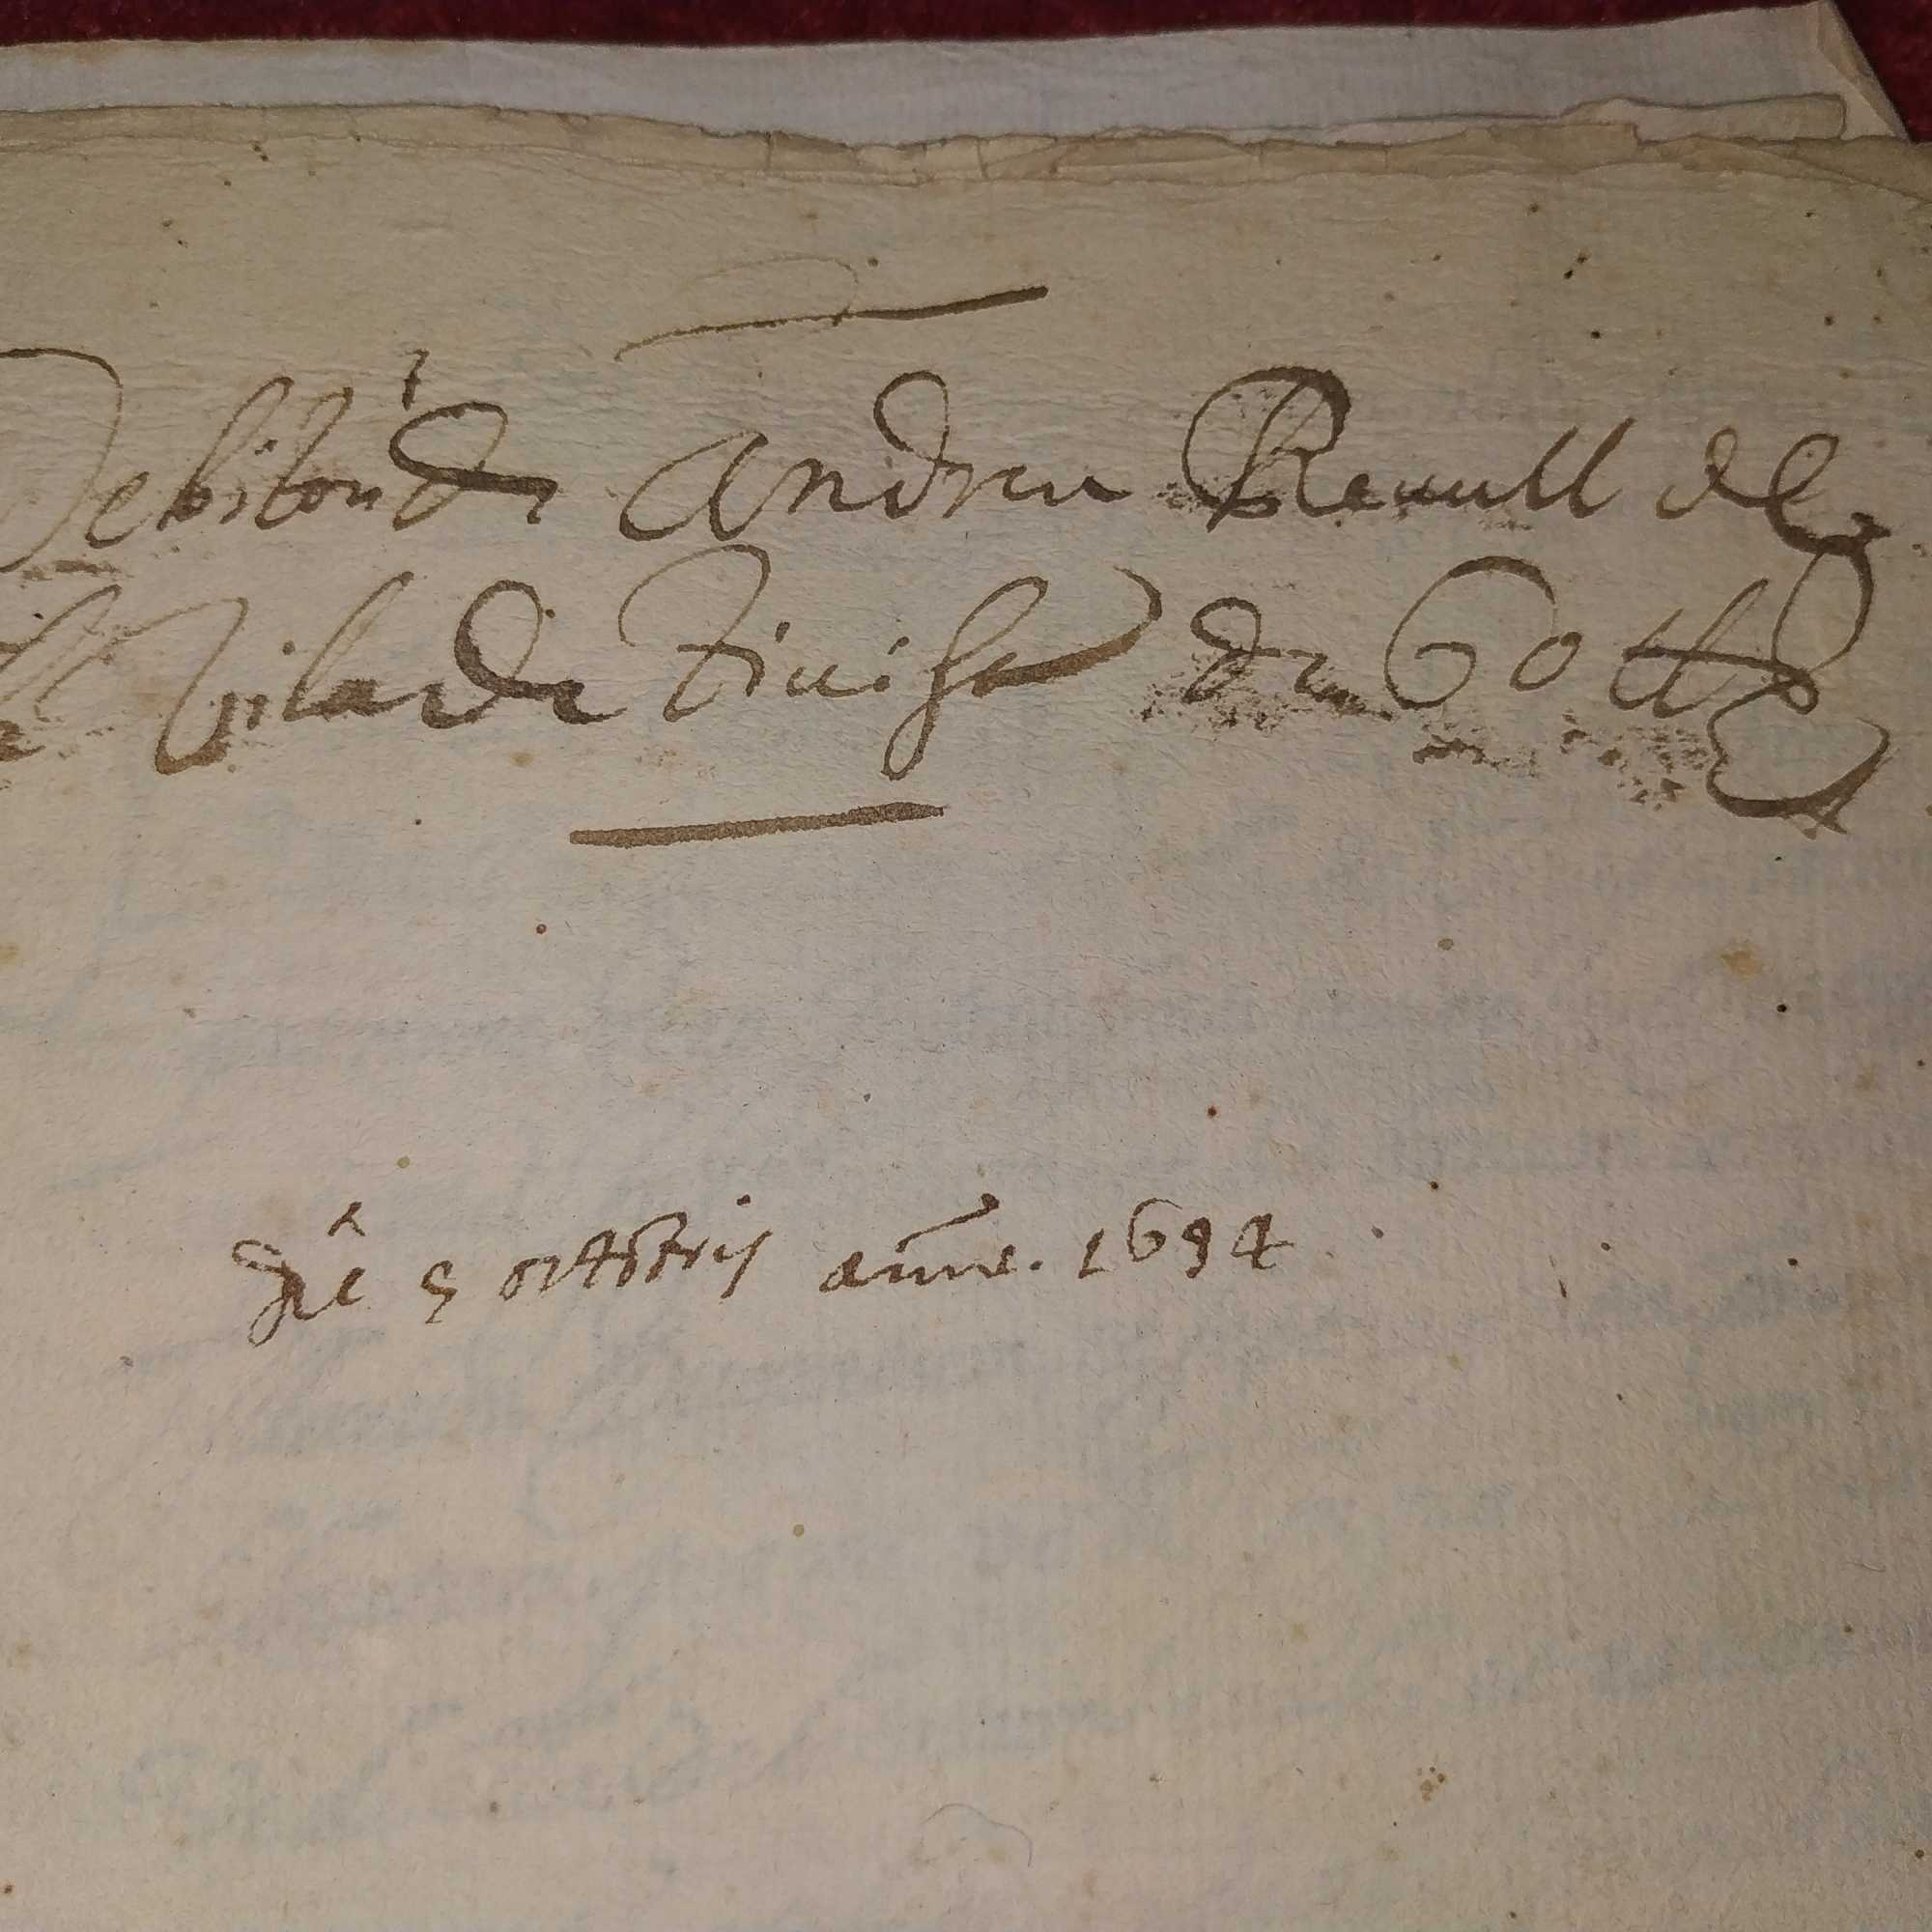 Debitori de Andreu Rexull de
la Vila de Tiuisa de 60 ll
Die 5 octobris anno. 1694